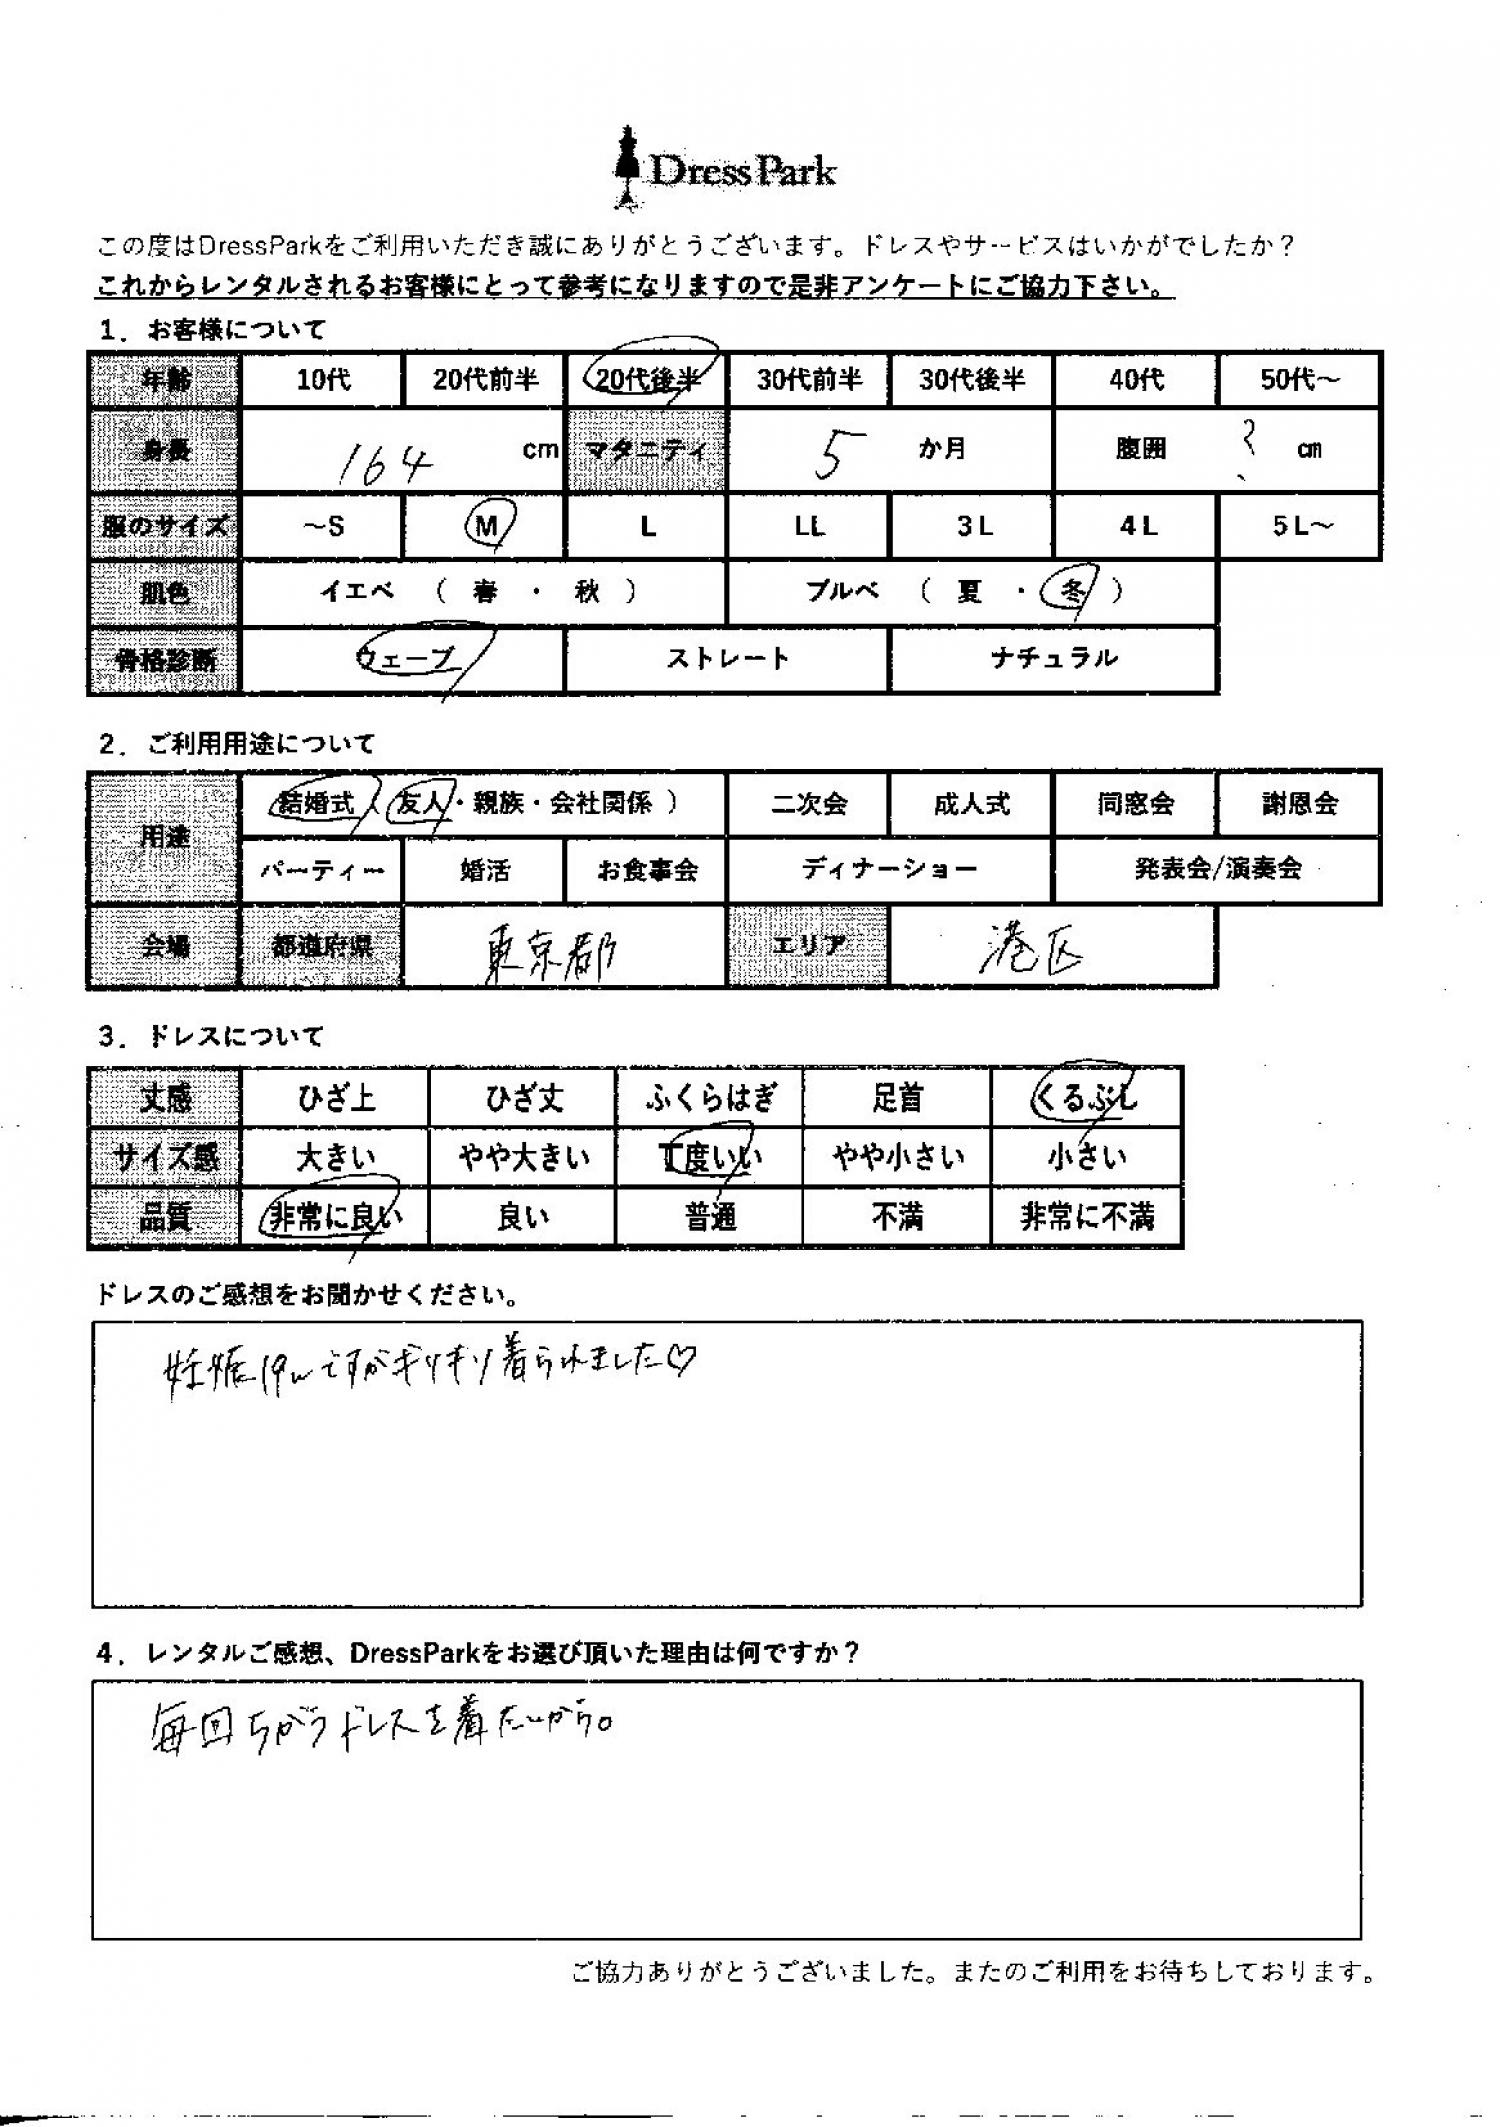 DressPark
この度はDressParkをご利用いただき誠にありがとうございます。ドレスやサービスはいかがでしたか？
これからレンタルされるお客様にとって参考になりますので是非アンケートにご協力下さい。
1．お客様について
年齢 10代 20代前半 20代後半 30代前半 30代後半 40代 50代～
身長 164 cm マタニティ 5 か月 腹囲 ? cm
服のサイズ ～S M L LL 3L 4L 5L～
肌色 イエベ （ 春 ・ 秋 ） ブルベ （ 夏 ・ 冬 ）
骨格診断 ウェーブ ストレート ナチュラル
2．ご利用用途について
用途 結婚式（友人・親族・会社関係） 二次会 成人式 同窓会 謝恩会
パーティー 婚活 お食事会 ディナーショー 発表会/演奏会
会場 都道府県 東京都 エリア 港区
3．ドレスについて
丈感 ひざ上 ひざ丈 ふくらはぎ 足首 くるぶし
サイズ感 大きい やや大きい 丁度いい やや小さい 小さい
品質 非常に良い 良い 普通 不満 非常に不満
ドレスのご感想をお聞かせください。
妊娠19wですがギリギリ着られました♡
4．レンタルご感想、DressParkをお選び頂いた理由は何ですか？
毎回ちがうドレスを着たいから。
ご協力ありがとうございました。またのご利用をお待ちしております。